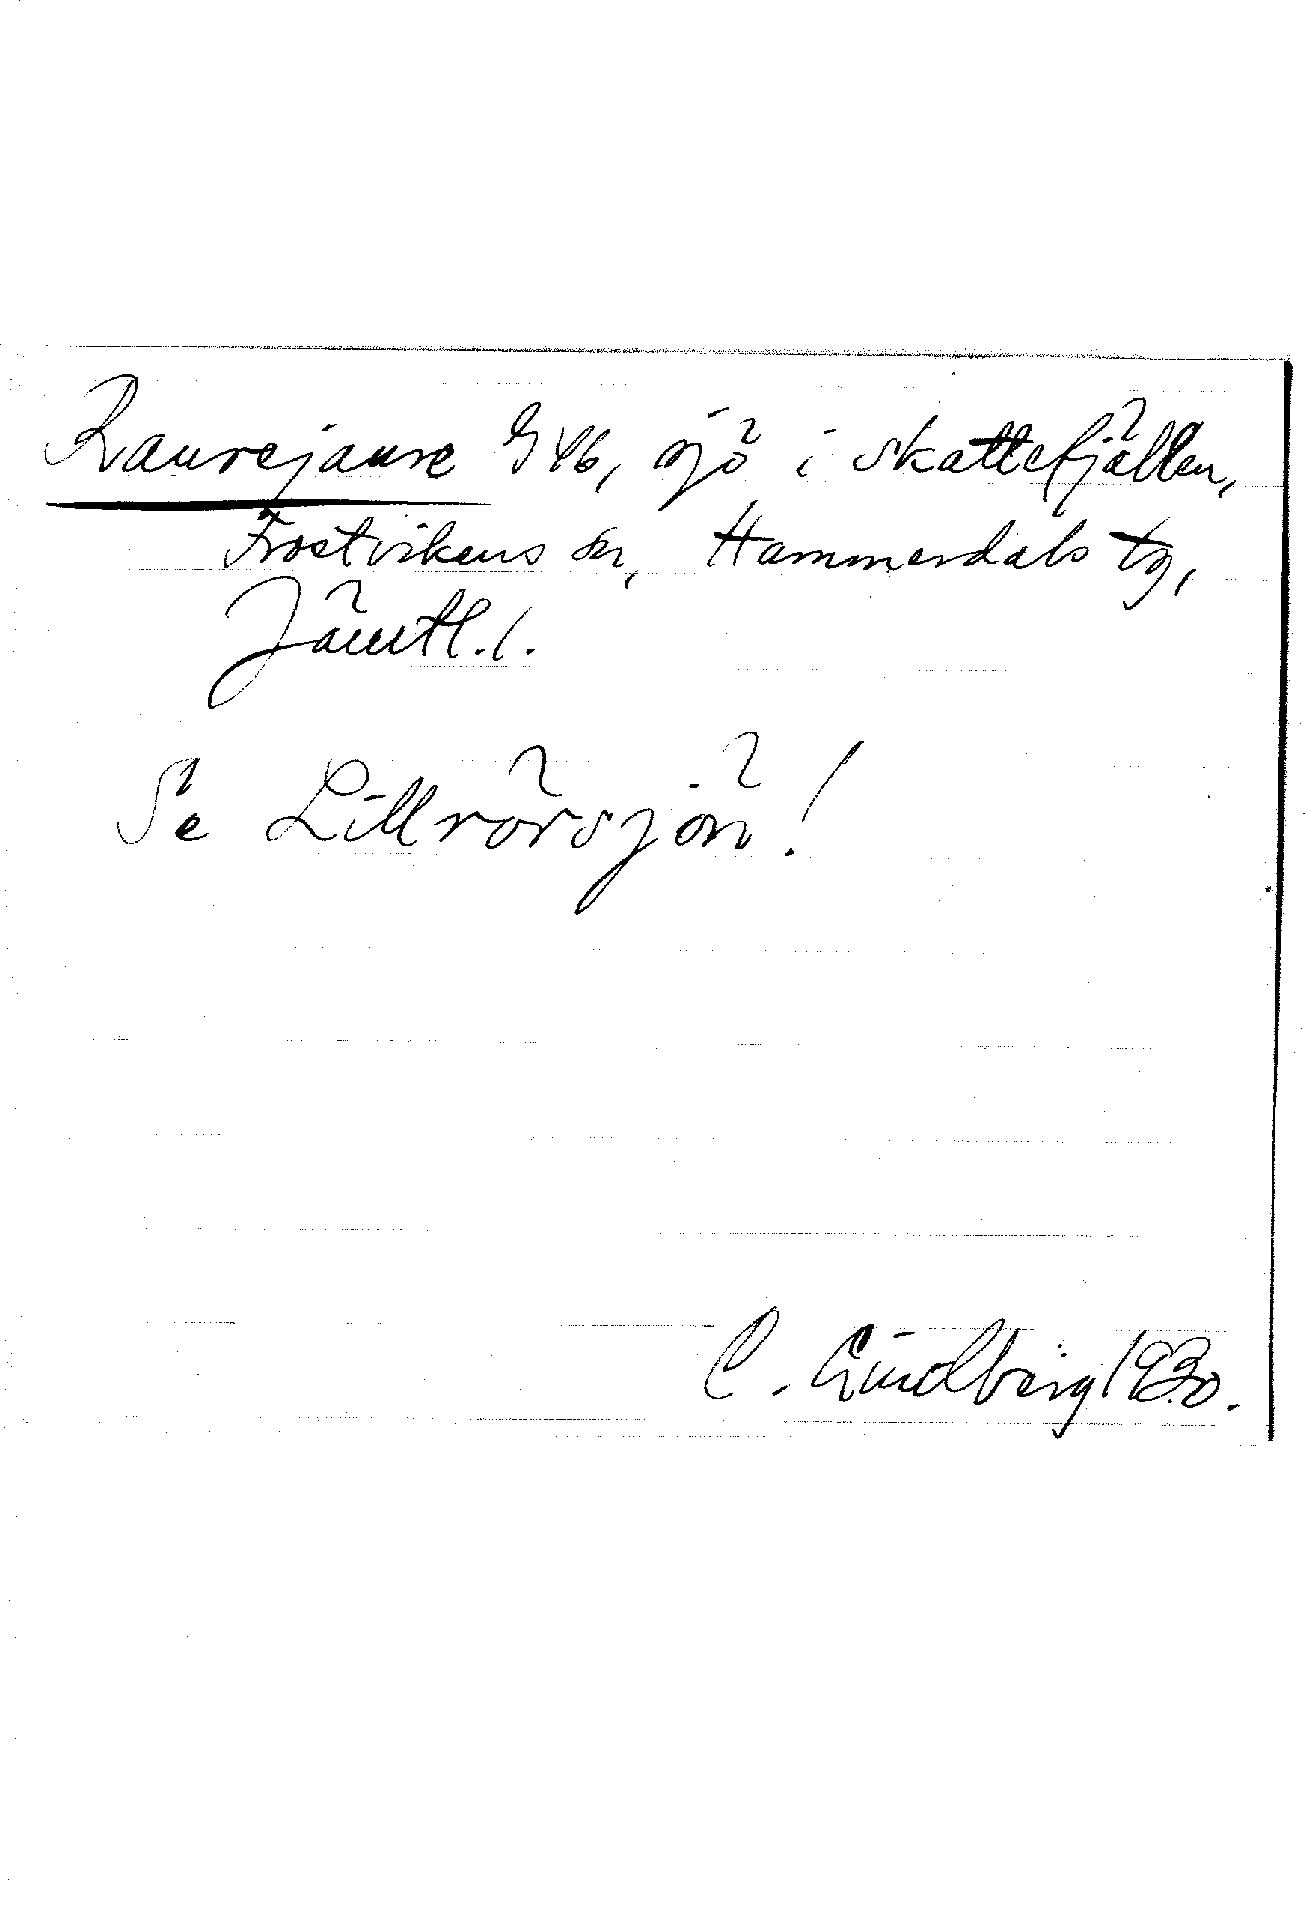 Raurejaure G46, sjö i skattefjällen,
Frostvikens sn, Hammerdals tg,
Jämtl. l.
Se Lillrörsjön!
C. Lindberg 1930.